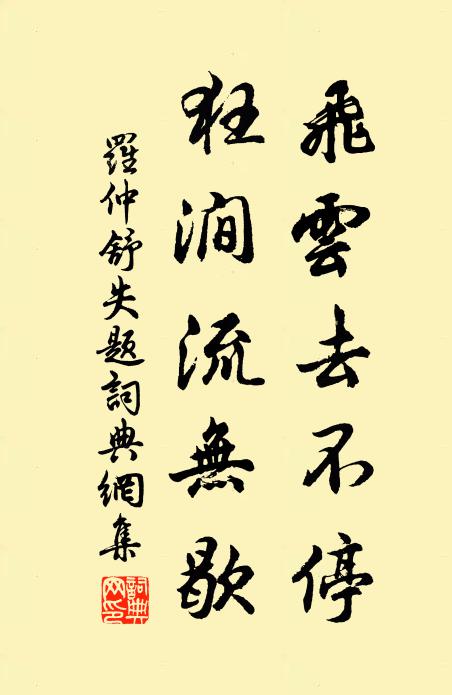 飛雲去不停
狂澗流無歇
羅仲舒失題詞典網集
詞典網印